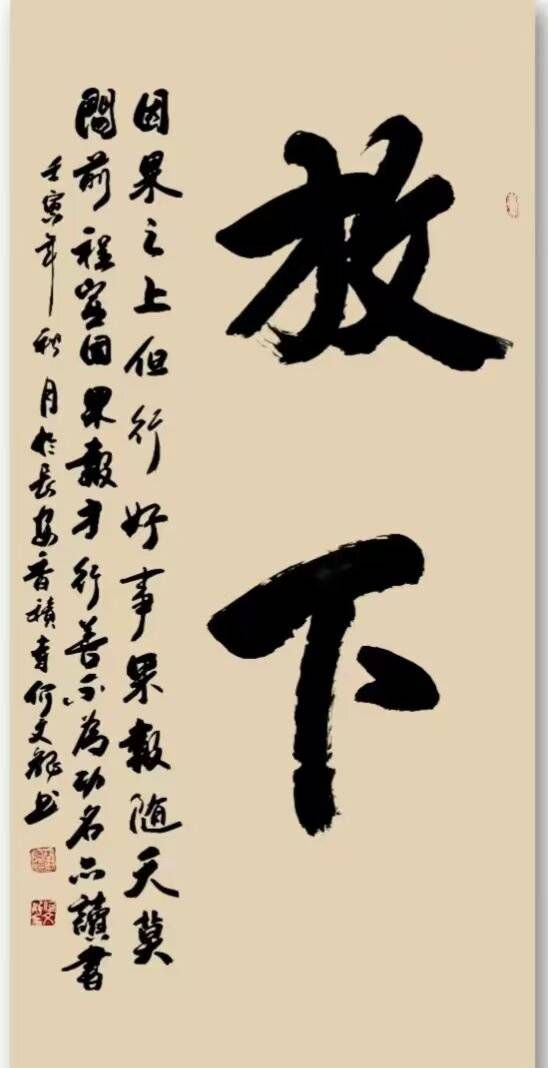 放下
因果之上但行好事果報随天莫
問前程豈因果報才行善不為功名亦讀書
壬寅年秋月於長安香積寺何文书